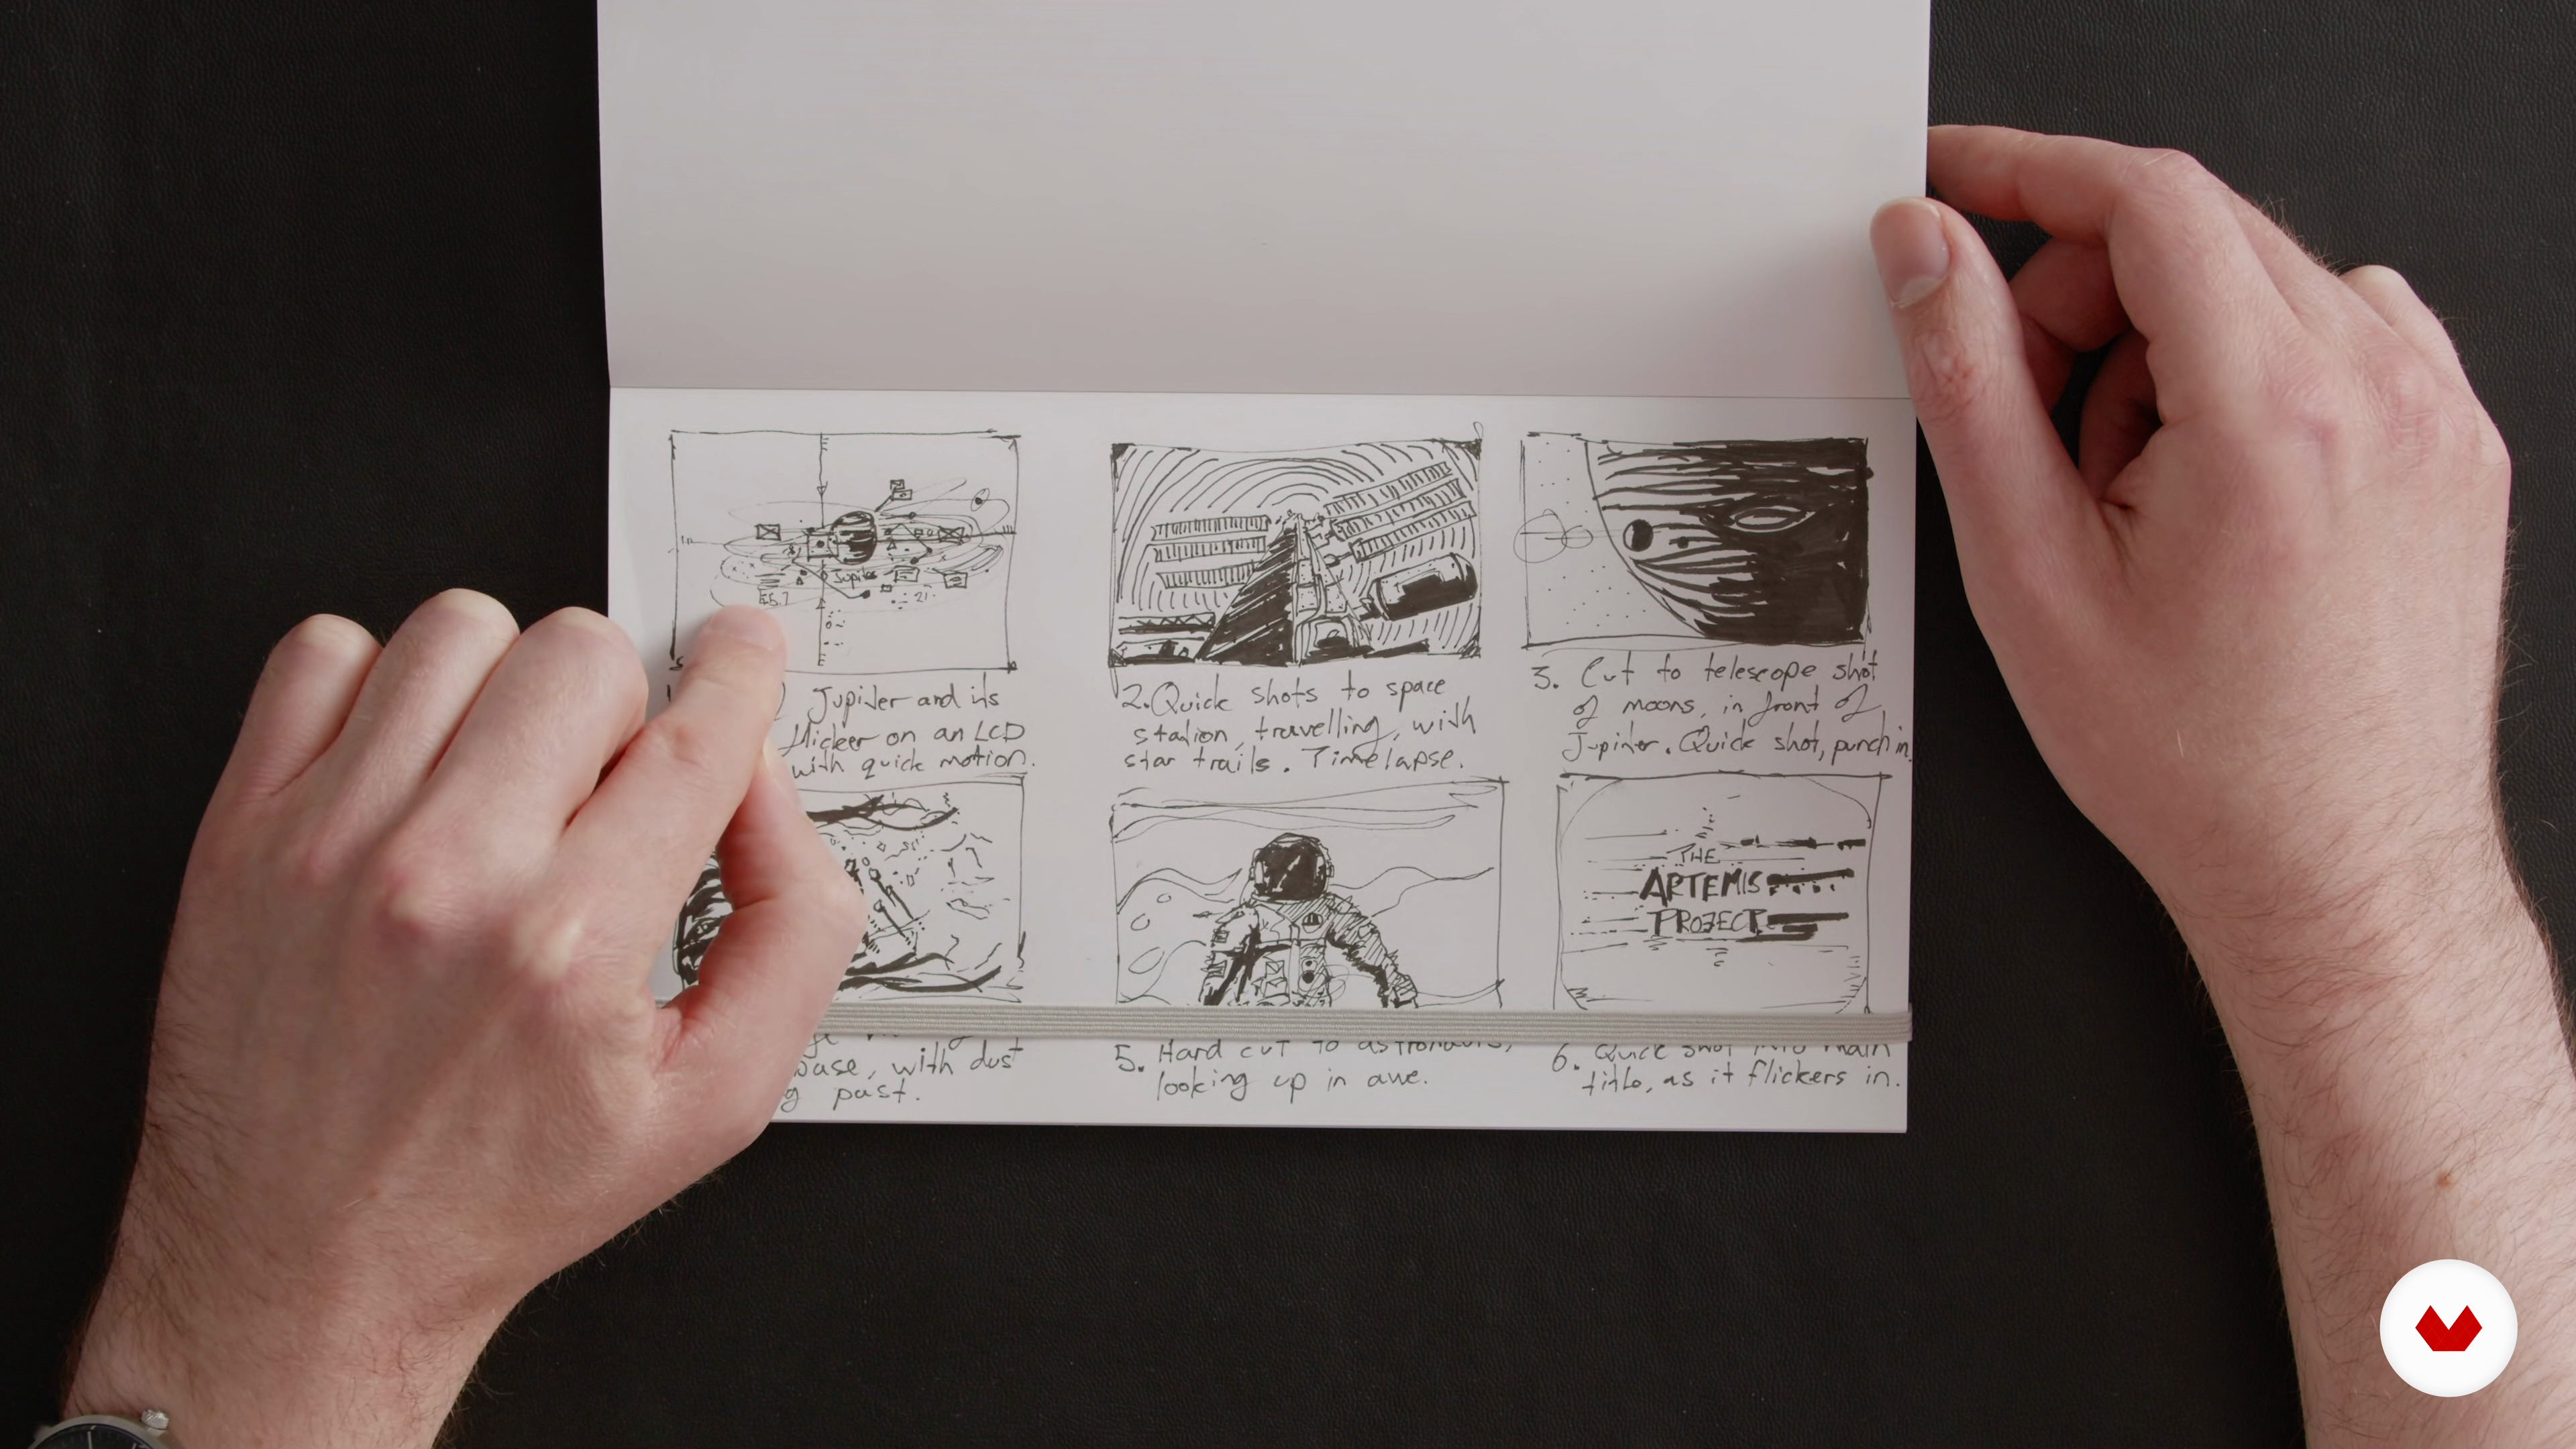 Jupiter
Jupiter and its
flicker on an LCD
with quick motion.
2. Quick shots to space
station, travelling, with
star trails. Timelapse.
3. Cut to telescope shot
of moons, in front of
Jupiter. Quick shot, punch in.
THE
ARTEMIS
PROJECT
base, with dust
past.
5. Hard cut to astronauts,
looking up in awe.
6. Quick shot into main
title, as it flickers in.